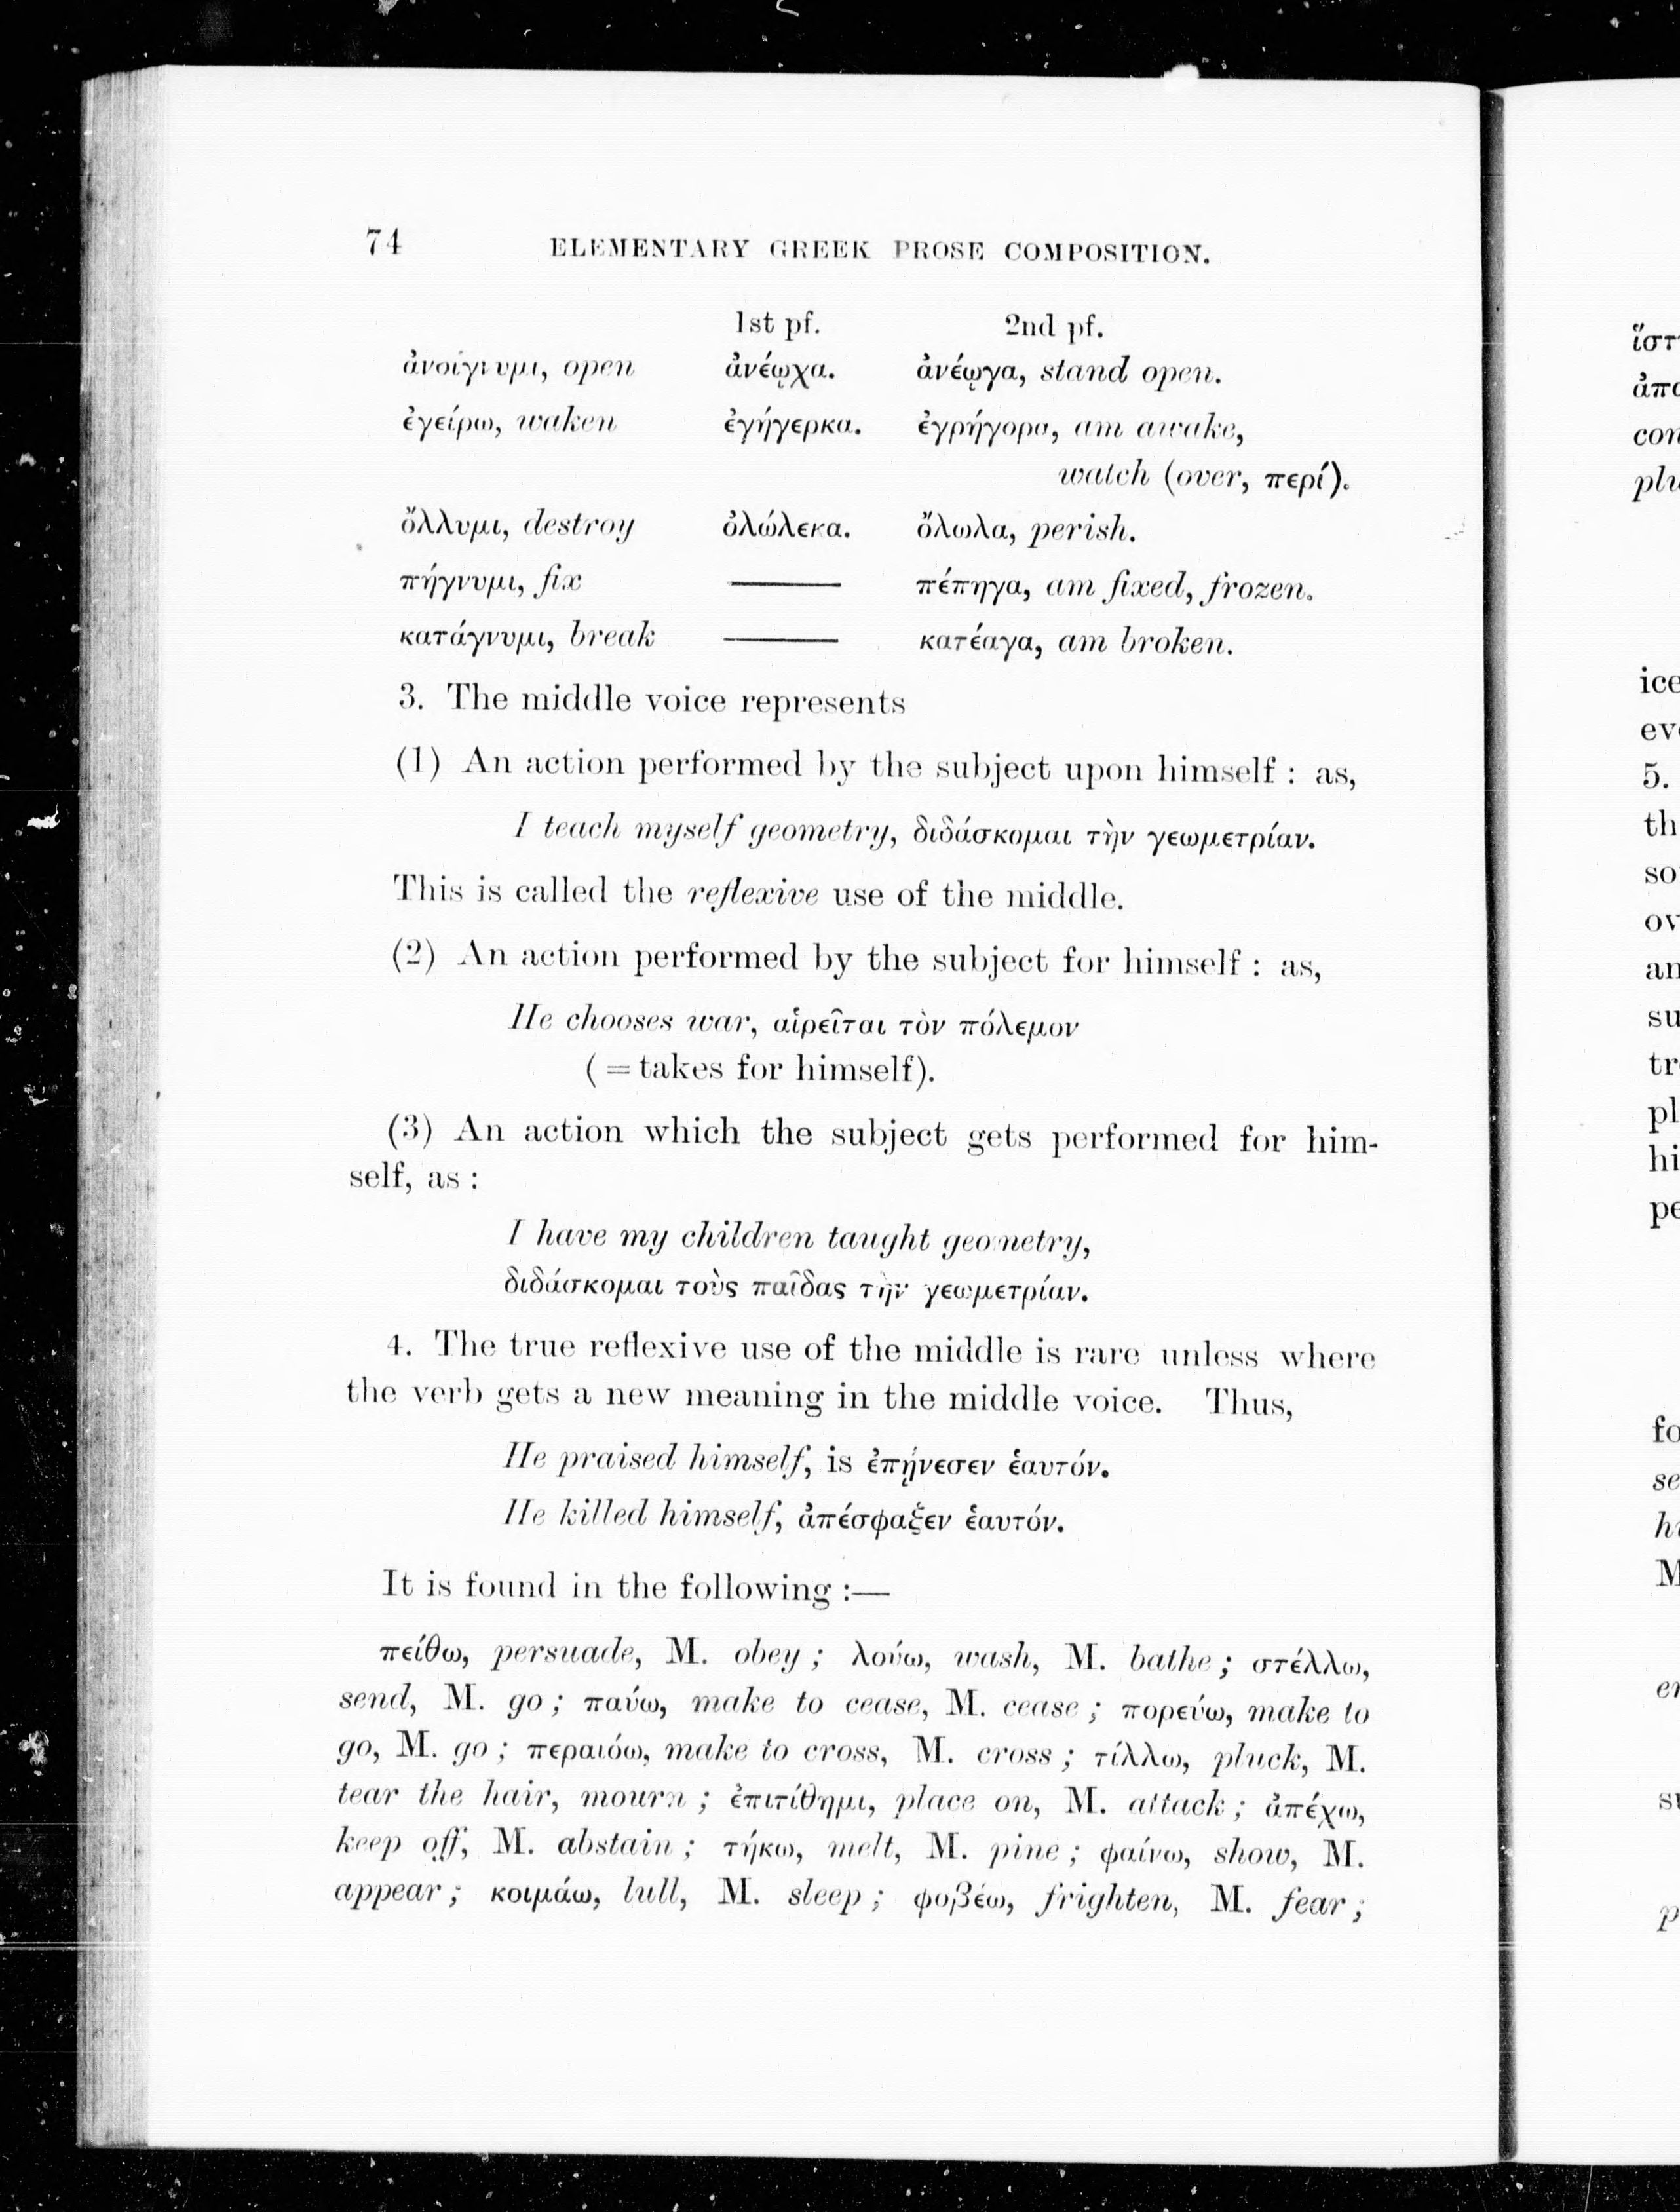 74 ELEMENTARY GREEK PROSE COMPOSITION.
1st pf. 2nd pf.
ἀνοίγνυμι, open ἀνέῳχα. ἀνέῳγα, stand open.
ἐγείρω, waken ἐγήγερκα. ἐγρήγορα, am awake,
watch (over, περί).
ὄλλυμι, destroy ὀλώλεκα. ὄλωλα, perish.
πήγνυμι, fix —— πέπηγα, am fixed, frozen.
κατάγνυμι, break —— κατέαγα, am broken.
3. The middle voice represents
(1) An action performed by the subject upon himself : as,
I teach myself geometry, διδάσκομαι τὴν γεωμετρίαν.
This is called the reflexive use of the middle.
(2) An action performed by the subject for himself : as,
He chooses war, αἱρεῖται τὸν πόλεμον
( = takes for himself).
(3) An action which the subject gets performed for him-
self, as :
I have my children taught geometry,
διδάσκομαι τοὺς παῖδας τὴν γεωμετρίαν.
4. The true reflexive use of the middle is rare unless where
the verb gets a new meaning in the middle voice. Thus,
He praised himself, is ἐπῄνεσεν ἑαυτόν.
He killed himself, ἀπέσφαξεν ἑαυτόν.
It is found in the following :—
πείθω, persuade, M. obey ; λούω, wash, M. bathe ; στέλλω,
send, M. go ; παύω, make to cease, M. cease ; πορεύω, make to
go, M. go ; περαιόω, make to cross, M. cross ; τίλλω, pluck, M.
tear the hair, mourn ; ἐπιτίθημι, place on, M. attack ; ἀπέχω,
keep off, M. abstain ; τήκω, melt, M. pine ; φαίνω, show, M.
appear ; κοιμάω, lull, M. sleep ; φοβέω, frighten, M. fear ;